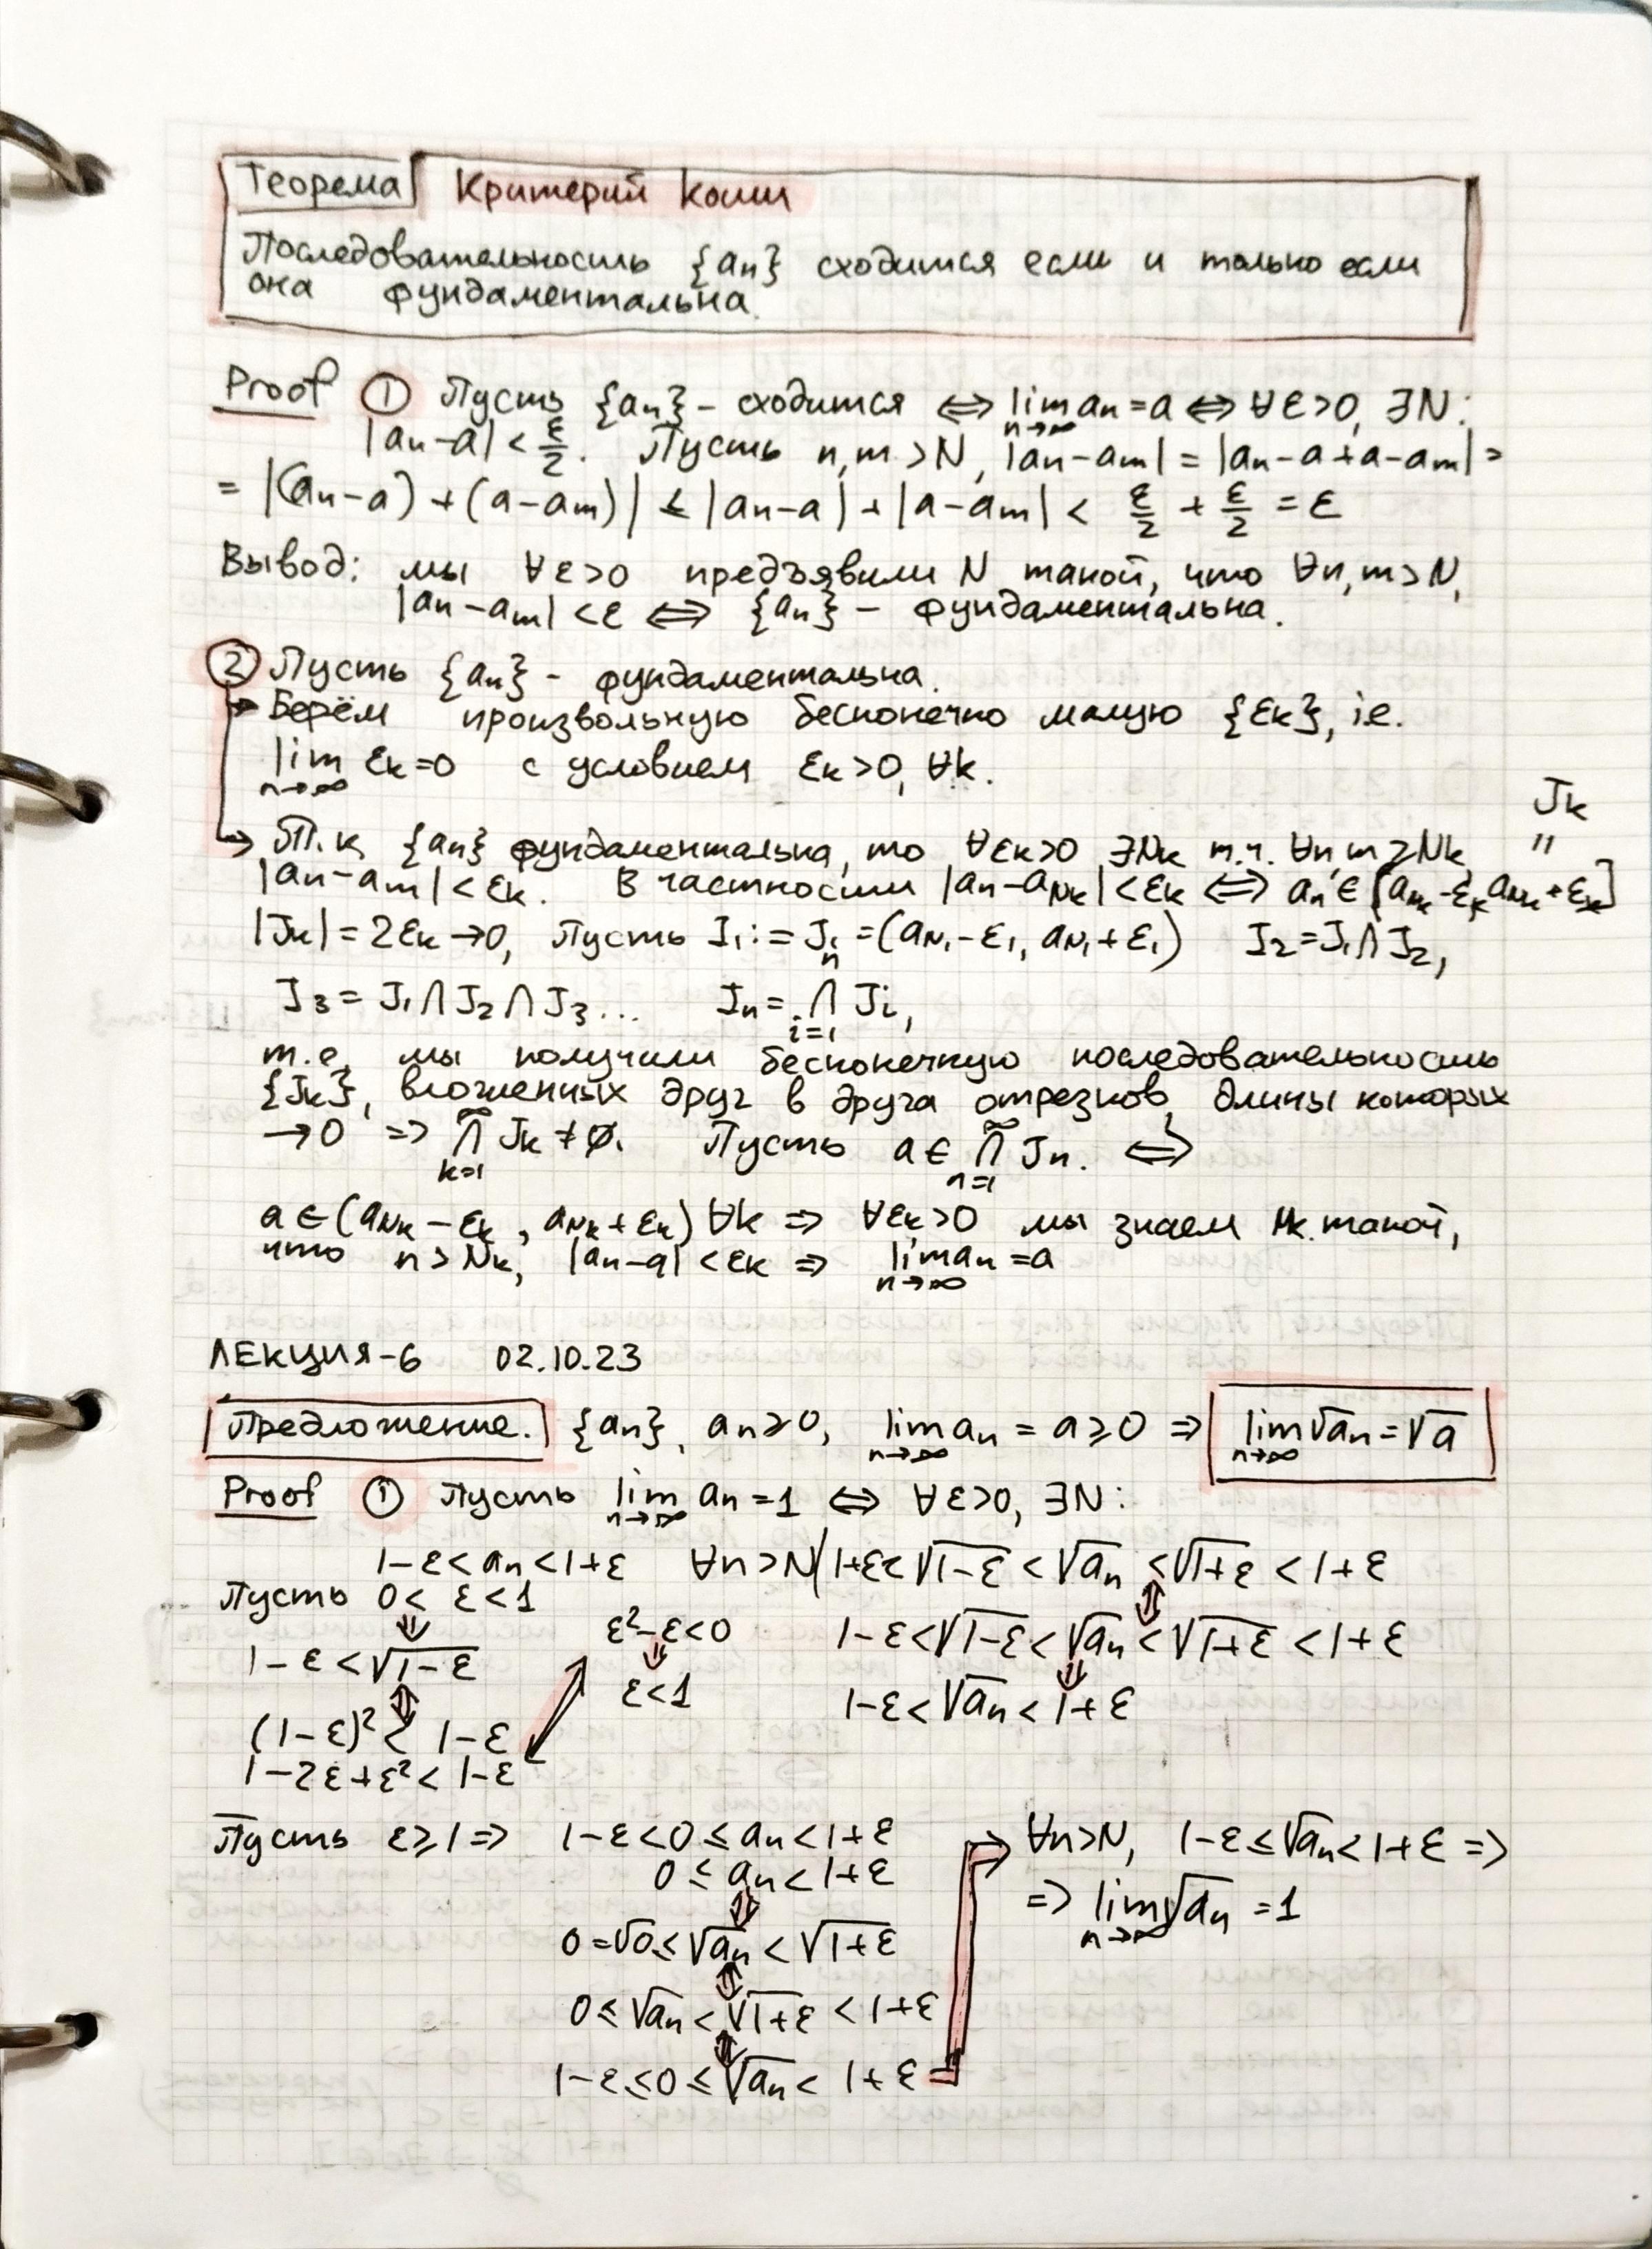 Теорема Критерий Коши
Последовательность {aₙ} сходится если и только если
она фундаментальна.
Proof ① Пусть {aₙ} - сходится ⇔ lim aₙ = a ⇔ ∀ε>0, ∃N:
n→∞
|aₙ-a| < ε/2. Пусть n,m >N, |aₙ-aₘ| = |aₙ-a+a-aₘ| =
= |(aₙ-a) + (a-aₘ)| ≤ |aₙ-a| + |a-aₘ| < ε/2 + ε/2 = ε
Вывод: мы ∀ε>0 предъявили N такой, что ∀n,m>N,
|aₙ-aₘ| <ε ⇔ {aₙ} - фундаментальна.
② Пусть {aₙ} - фундаментальна.
Берём произвольную бесконечно малую {εₖ}, i.e.
lim εₖ=0 с условием εₖ>0, ∀k.
n→∞
Jₖ
Т.к. {aₙ} фундаментальна, то ∀εₖ>0 ∃Nₖ т.ч. ∀n,m ≥Nₖ "
|aₙ-aₘ| < εₖ. В частности |aₙ-a_Nₖ| <εₖ ⇔ aₙ ∈ [a_Nₖ-εₖ, a_Nₖ+εₖ]
|Jₖ| = 2εₖ →0, Пусть I₁ := J₁ = (a_N₁-ε₁, a_N₁+ε₁) I₂ = J₁ ∩ J₂,
n
I₃ = J₁ ∩ J₂ ∩ J₃... Iₙ = ∩ Jᵢ,
i=1
т.е. мы получили бесконечную последовательность
{Jₖ}, вложенных друг в друга отрезков, длины которых
∞ ∞
→0 => ∩ Jₖ ≠ ∅. Пусть a ∈ ∩ Jₙ. ⇔
k=1 n=1
a ∈ (a_Nₖ - εₖ, a_Nₖ+εₖ) ∀k => ∀εₖ>0 мы знаем Nₖ такой,
что n > Nₖ, |aₙ-a| < εₖ => lim aₙ = a
n→∞
ЛЕКЦИЯ-6 02.10.23
Предложение. {aₙ}, aₙ≥0, lim aₙ = a ≥ 0 => lim √aₙ = √a
n→∞ n→∞
Proof ① Пусть lim aₙ = 1 ⇔ ∀ε>0, ∃N:
n→∞
1-ε < aₙ < 1+ε ∀n >N 1+ε<√1-ε < √aₙ < √1+ε < 1+ε
Пусть 0< ε < 1
⇓ ε²-ε<0 1-ε<√1-ε<√aₙ<√1+ε < 1+ε
1-ε <√1-ε ⇓ ⇓
⇕ ε<1 1-ε<√aₙ < 1+ε
(1-ε)² < 1-ε
1-2ε+ε² < 1-ε
Пусть ε≥1 => 1-ε<0 ≤ aₙ < 1+ε ∀n>N, 1-ε ≤ √aₙ < 1+ε =>
0 ≤ aₙ < 1+ε
⇕ => lim √aₙ = 1
n→∞
0=√0 ≤ √aₙ < √1+ε
⇕
0 ≤ √aₙ < √1+ε < 1+ε
⇕
1-ε ≤ 0 ≤ √aₙ < 1+ε